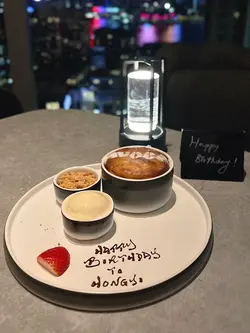 Happy
Birthday!
HAPPY
BIRTHDAY
TO
HONGYI